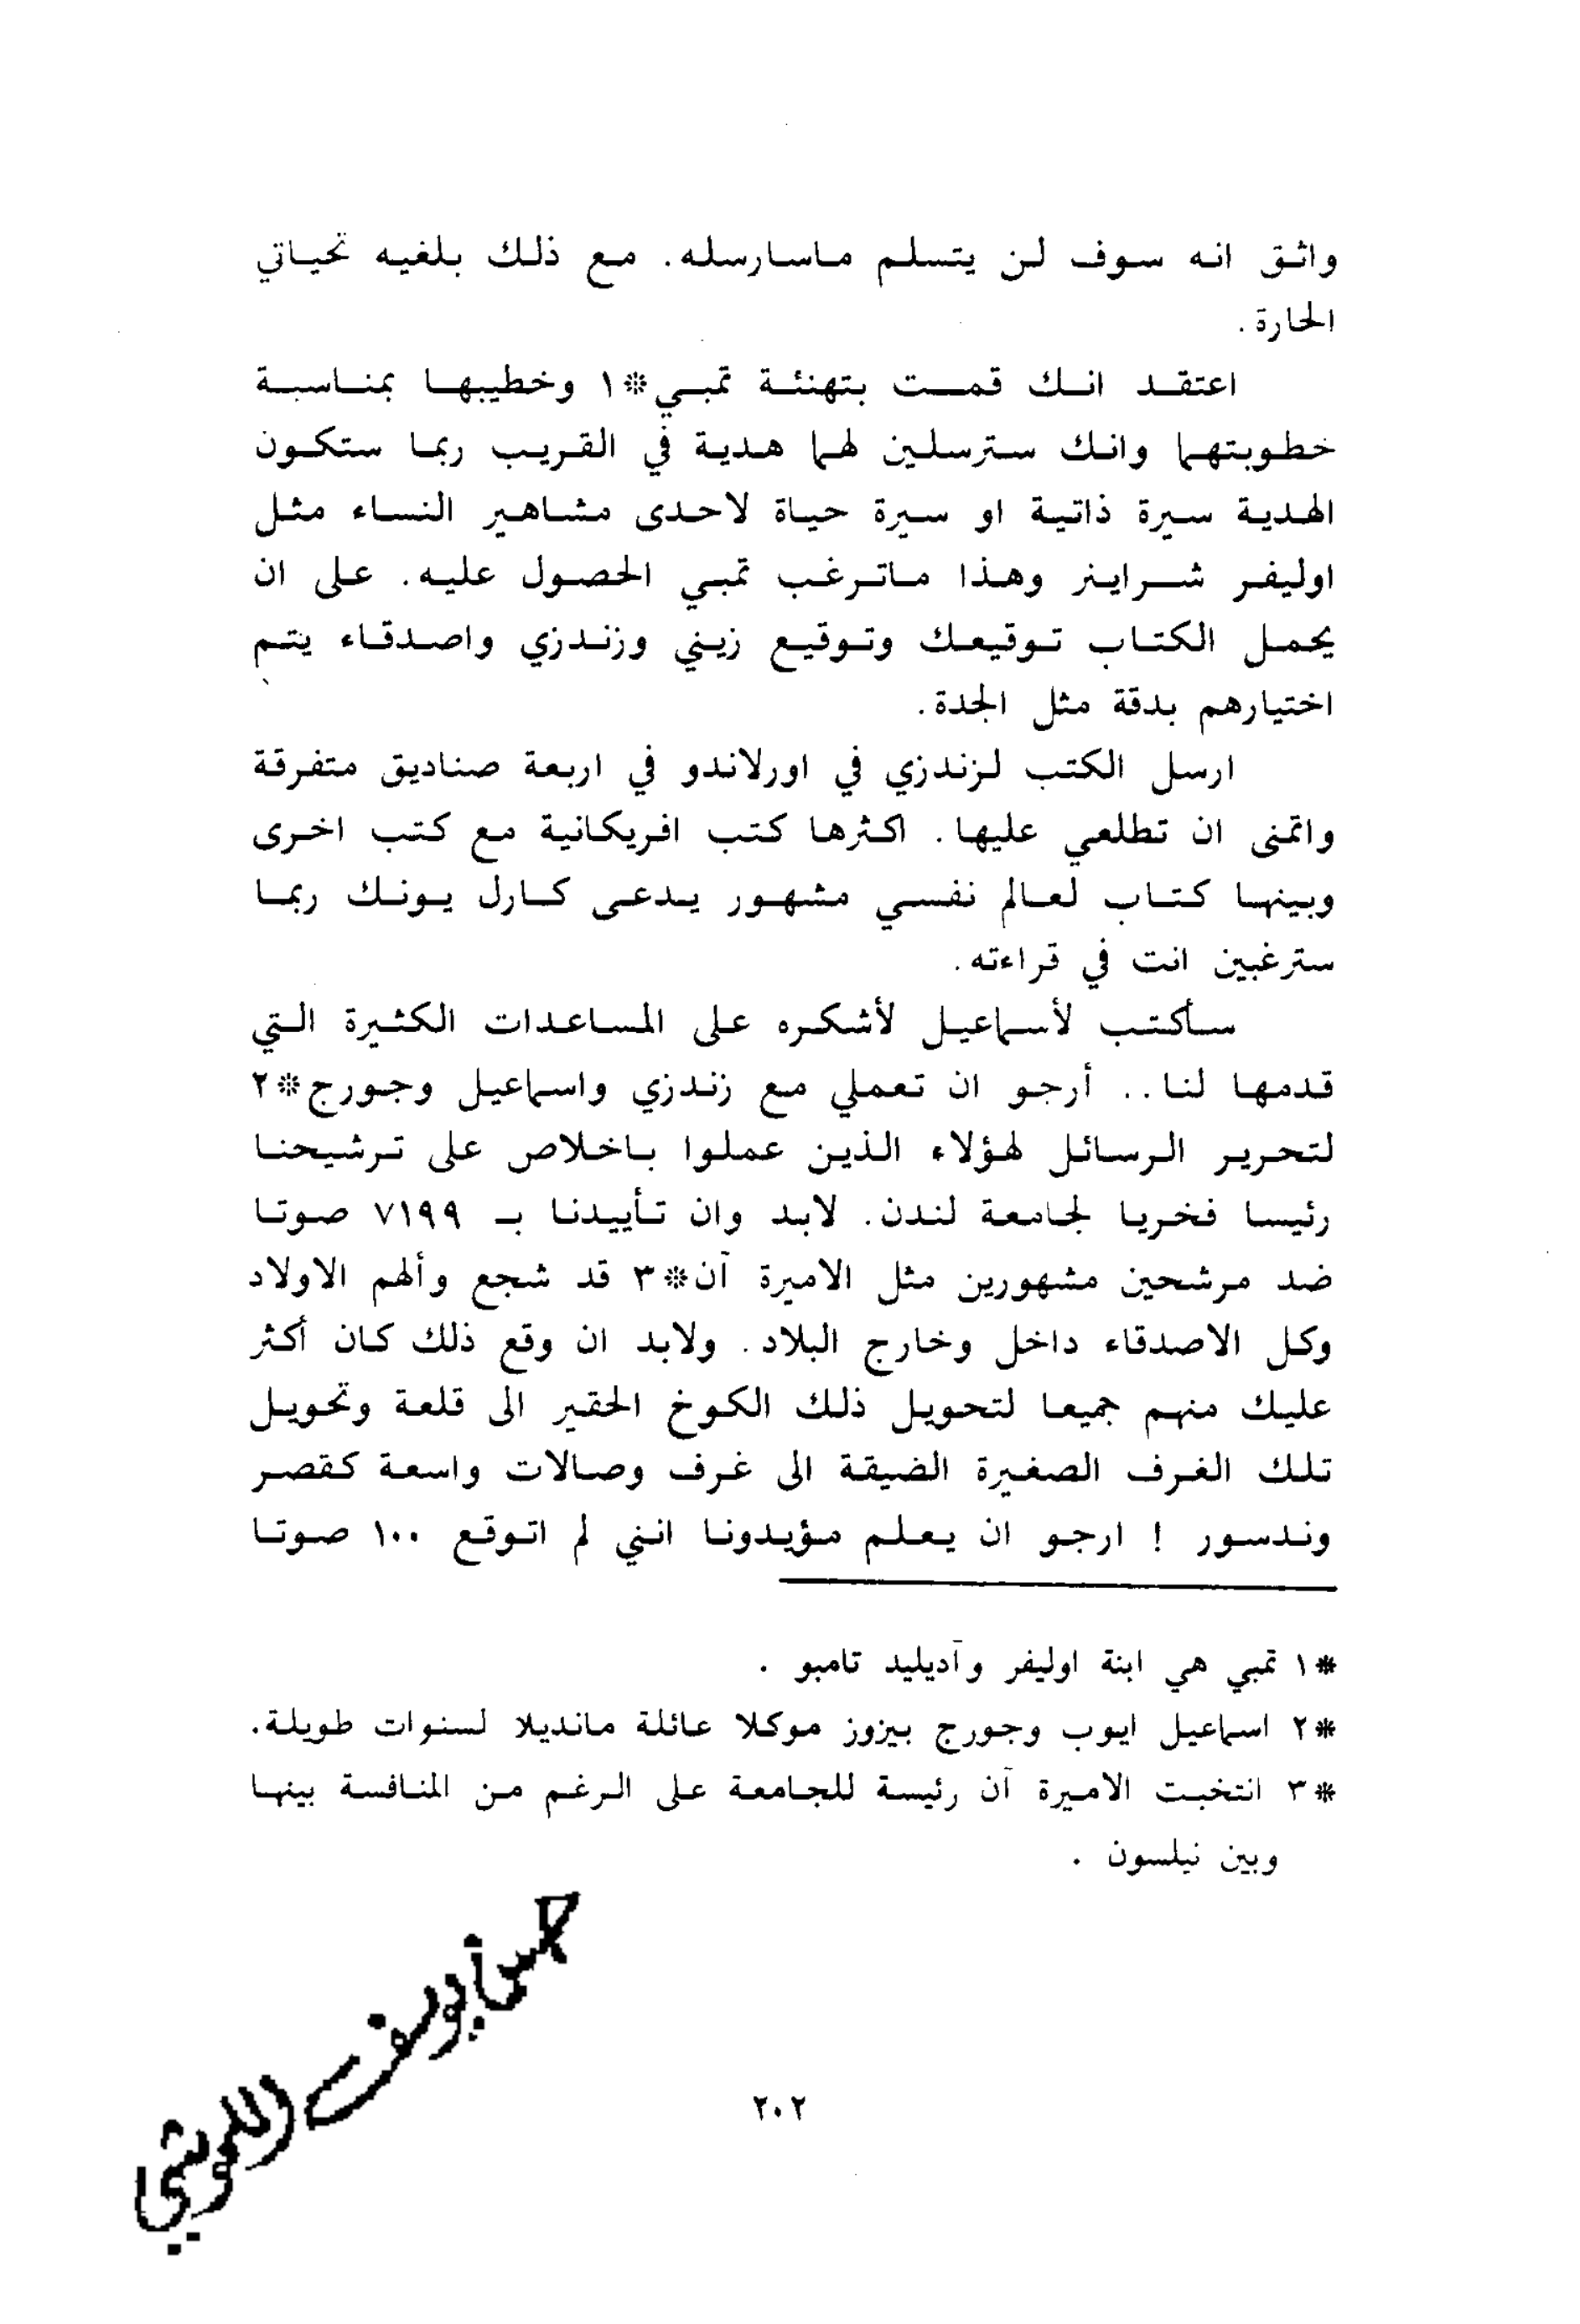 واثق انه سوف لن يتسلم ماسارسله. مع ذلك بلغيه تحياتي
الحارة.
اعتقد انك قمت بتهنئة تمبي*١ وخطيبها بمناسبة
خطوبتهما وانك سترسلين لهما هدية في القريب ربما ستكون
الهدية سيرة ذاتية او سيرة حياة لاحدى مشاهير النساء مثل
اوليفر شراينر وهذا ماترغب تمبي الحصول عليه. على ان
يحمل الكتاب توقيعك وتوقيع زيني وزندزي واصدقاء يتم
اختيارهم بدقة مثل الجدة.
ارسل الكتب لزندزي في اورلاندو في اربعة صناديق متفرقة
واتمنى ان تطلعي عليها. اكثرها كتب افريكانية مع كتب اخرى
وبينها كتاب لعالم نفسي مشهور يدعى كارل يونك ربما
سترغبين انت في قراءته.
سأكتب لأسماعيل لأشكره على المساعدات الكثيرة التي
قدمها لنا.. أرجو ان تعملي مع زندزي واسماعيل وجورج*٢
لتحرير الرسائل لهؤلاء الذين عملوا باخلاص على ترشيحنا
رئيسا فخريا لجامعة لندن. لابد وان تأييدنا بـ ٧١٩٩ صوتا
ضد مرشحين مشهورين مثل الاميرة آن*٣ قد شجع وألهم الاولاد
وكل الاصدقاء داخل وخارج البلاد. ولابد ان وقع ذلك كان أكثر
عليك منهم جميعا لتحويل ذلك الكوخ الحقير الى قلعة وتحويل
تلك الغرف الصغيرة الضيقة الى غرف وصالات واسعة كقصر
وندسور ! ارجو ان يعلم مؤيدونا انني لم اتوقع ١٠٠ صوتا
*١ تمبي هي ابنة اوليفر وآديليد تامبو .
*٢ اسماعيل ايوب وجورج بيزوز موكلا عائلة مانديلا لسنوات طويلة.
*٣ انتخبت الاميرة آن رئيسة للجامعة على الرغم من المنافسة بينها
وبين نيلسون .
٢٠٢